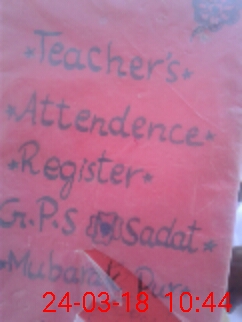 *Teacher's*
*Attendence*
*Register*
G.P.S Sadat*
Mubarak Pura
24-03-18 10:44